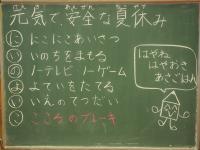 元気で、安全な夏休み
に にこにこあいさつ
い いのちをまもる
の ノーテレビ ノーゲーム
よ よていをたてる
い いえのてつだい
く こころのブレーキ
はやね
はやおき
あさごはん